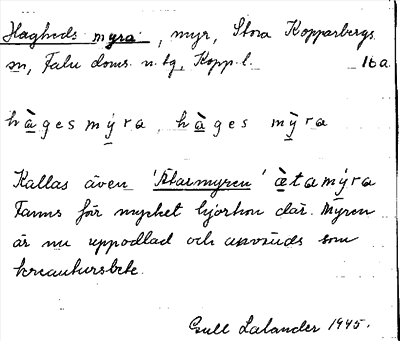 Hagheds myra, myr, Stora Kopparbergs
sn, Falu doms. n. tg, Kopp. l. 16a
hàgesmýra, hàges mỳra
Kallas även 'Ätarmyren' ætamýra
Fanns förr mycket hjortron där. Myren
är nu uppodlad och används som
kreatursbete.
Gull Lalander 1945.